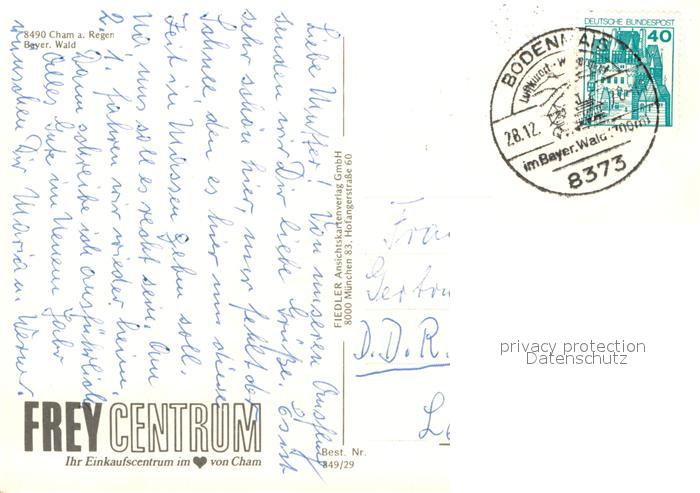 8490 Cham a. Regen
Bayer. Wald
Liebe Mutter! Von unserem Ausflug
senden wir Dir liebe Grüße. Es ist
sehr schön hier, nur fehlt der
Schnee, den es hier um diese
Zeit in Massen geben soll.
Na, uns soll es recht sein. Am
2. 1. fahren wir wieder heim.
Dann schreibe ich ausführlich
Alles Gute im Neuen Jahr
wünschen Dir Maria u. Werner.
FREY CENTRUM
Ihr Einkaufscentrum im ♥ von Cham
FIEDLER Ansichtskartenverlag GmbH
8000 München 83, Hofangerstraße 60
Best. Nr.
849/29
DEUTSCHE BUNDESPOST
40
BODENMAIS
28.12.
im Bayer. Wald
8373
Frau
Gertru
D.D.R.
Le
privacy protection
Datenschutz